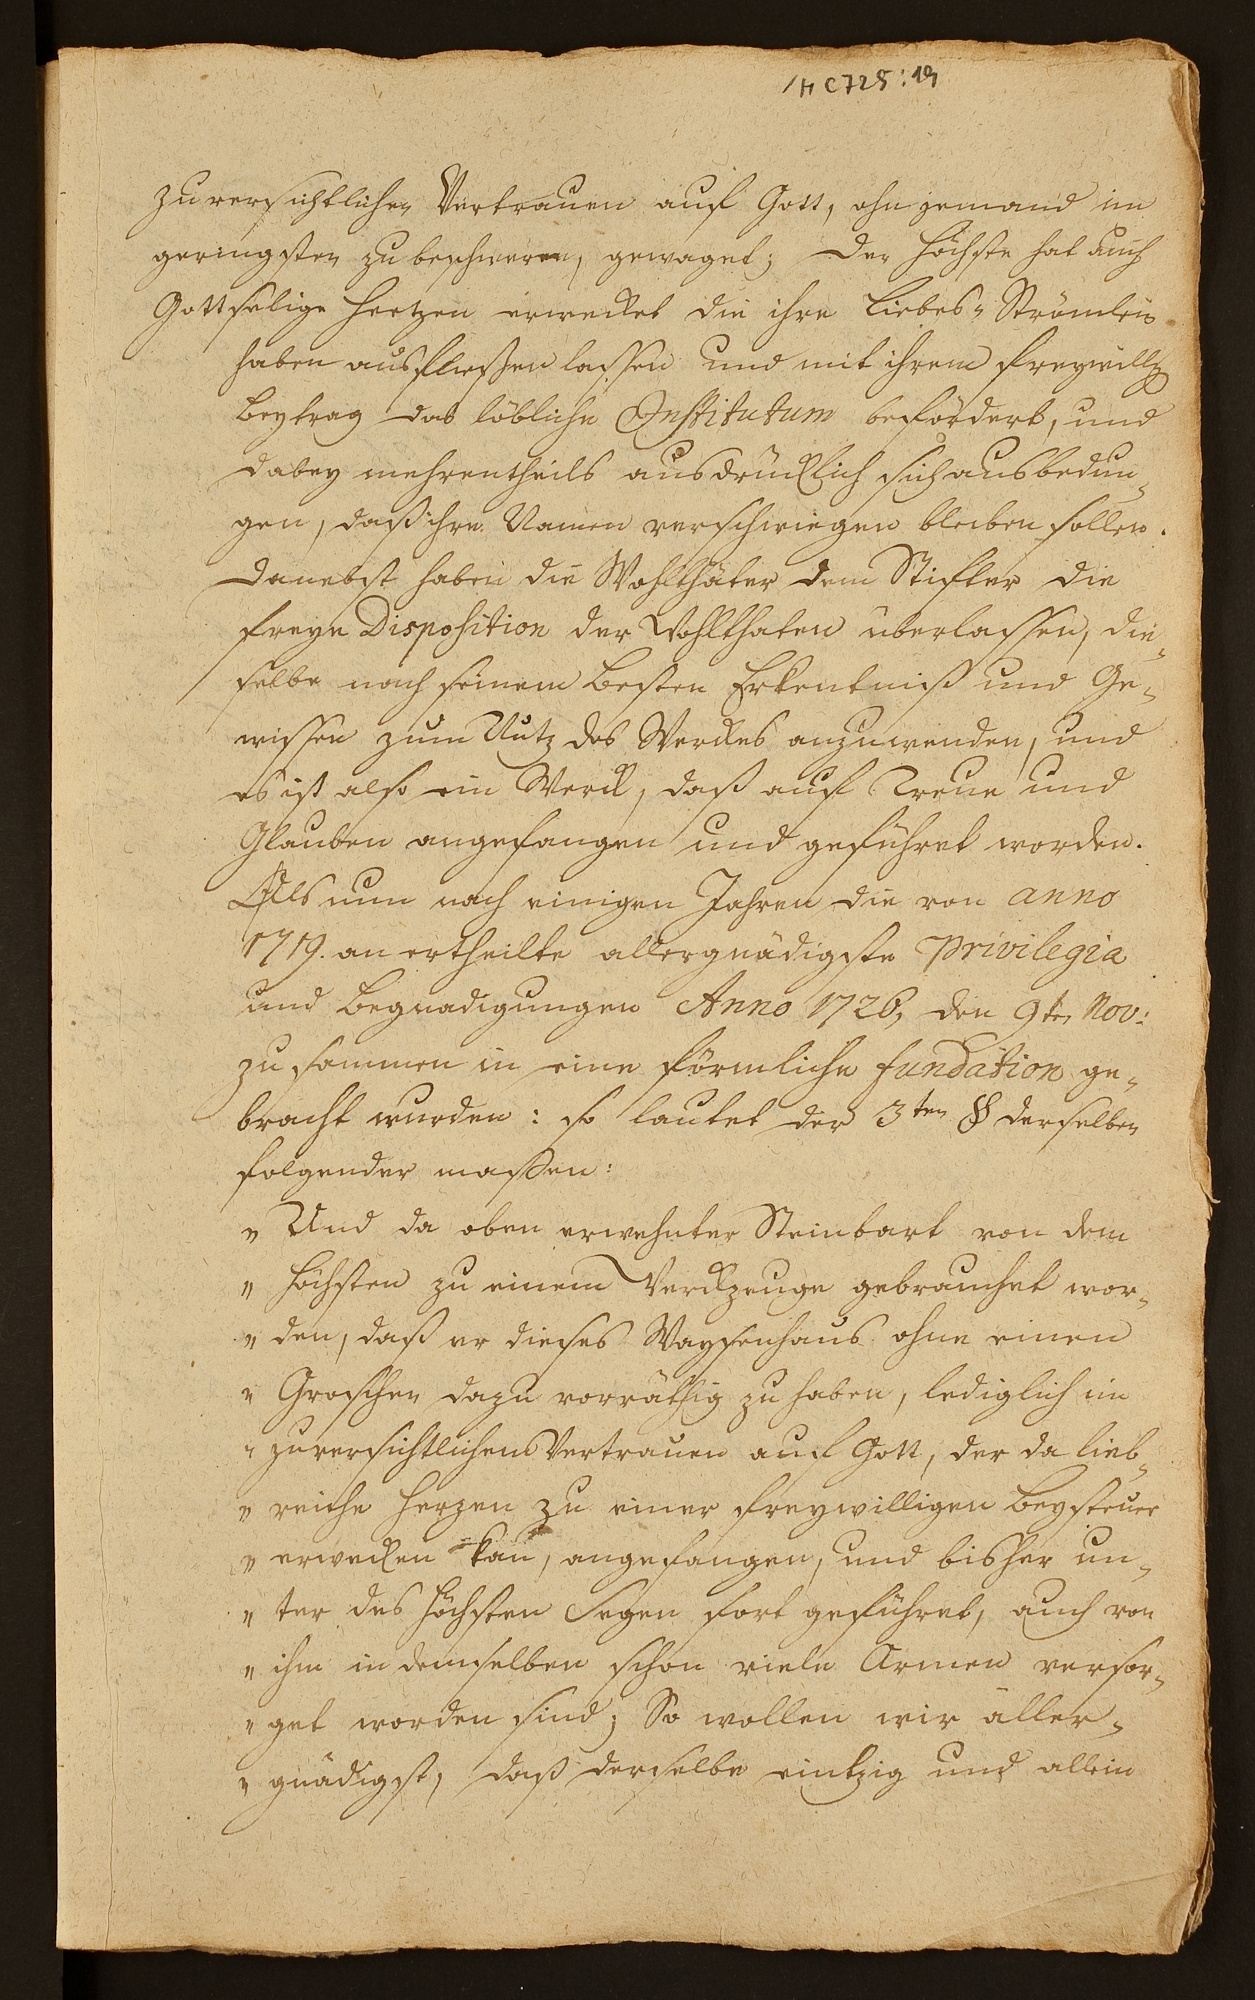 /H C725:19
zuversichtlichen Vertrauen auf Gott, ohn jemand im
geringsten zu beschweren, gewaget; Der Höchste hat auch
Gottselige Hertzen erwecket die ihre Liebes-Strömlein
haben ausfließen lassen und mit ihrem freywillg
Beytrag das löbliche Institutum befördert, und
dabey mehrentheils ausdrücklich sich ausbedun-
gen, daß ihre Namen verschwiegen bleiben sollen.
Danebst haben die Wohlthäter dem Stifter die
freye Disposition der Wohlthaten überlassen, die-
selbe nach seinem besten Erkentniß und Ge-
wissen zum Nutz des Werckes anzuwenden, und
es ist also ein Werck, daß auf Treue und
Glauben angefangen und geführet worden.
Als nun nach einigen Jahren die von anno
1719. an ertheilte allergnädigste Privilegia
und Begnadigungen Anno 1726, den 9ten Nov:
zusammen in eine förmliche fundation ge-
bracht wurden: so lautet der 3ten § derselben
folgender maßen:
„ Und da oben erwehnter Steinbart von dem
„ Höchsten zu einem Werckzeuge gebrauchet wor-
„ den, daß er dieses Waysenhaus ohne einen
„ Groschen dazu vorräthig zu haben, lediglich im
„ zuversichtlichem Vertrauen auf Gott, der da lieb-
„ reiche Herzen zu einer freywilligen Beysteuer
„ erwecken kan, angefangen, und bisher un-
„ ter des Höchsten Segen fort geführet, auch von
„ ihm in demselben schon viele Armen versor-
„ get worden sind; So wollen wir aller-
„ gnädigst, daß derselbe eintzig und allein